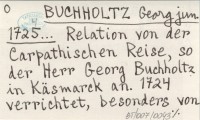 O
BUCHHOLTZ Georg jun
1725... Relation von der
Carpathischen Reise, so
der Herr Georg Buchholtz
in Käsmarck an. 1724
verrichtet, besonders von